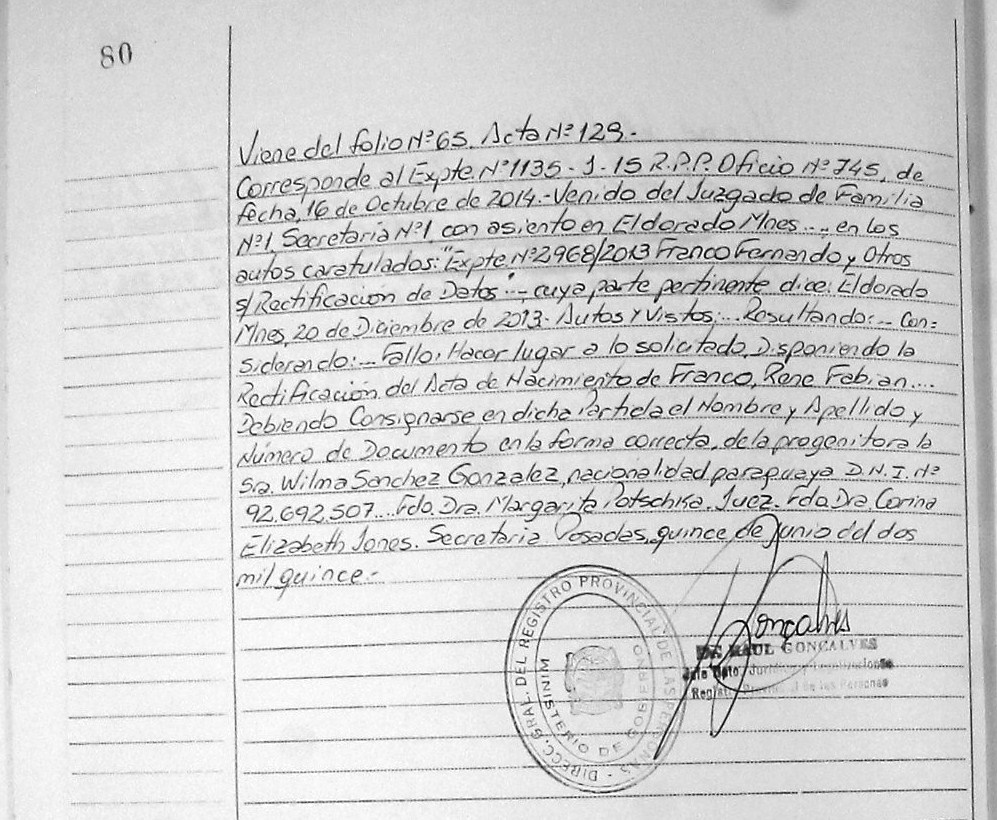 80
Viene del folio Nº 65. Acta Nº 129.-
Corresponde al Expte. Nº 1135 - J - 15 R.P.P. Oficio Nº 745, de
fecha, 16 de Octubre de 2014.- Venido del Juzgado de Familia
Nº 1, Secretaria Nº 1, con asiento en Eldorado Mnes.... en los
autos caratulados: "Expte Nº 2968/2013 Franco Fernando y Otros
s/ Rectificacion de Datos"..., cuya parte pertinente dice: Eldorado
Mnes, 20 de Diciembre de 2013.- Autos Y Vistos:... Resultando:... Con=
siderando:... Fallo: Hacer lugar a lo solicitado, Disponiendo la
Rectificación del Acta de Nacimiento de Franco, Rene Fabian....
Debiendo Consignarse en dicha Partida el Nombre y Apellido y
Número de Documento en la forma correcta, de la progenitora la
Sra. Wilma Sanchez Gonzalez, nacionalidad paraguaya D.N.I. Nº
92.692.507... Fdo. Dra. Margarita Potschka. Juez. Fdo. Dra. Corina
Elizabeth Jones. Secretaria. Posadas, quince de Junio del dos
mil quince.-
DIRECC. GRAL. DEL REGISTRO PROVINCIAL DE LAS PERSONAS
MINISTERIO DE GOBIERNO
Gonçalves
RAUL GONCALVES
Jefe Dpto.
Registro Provincial de las Personas